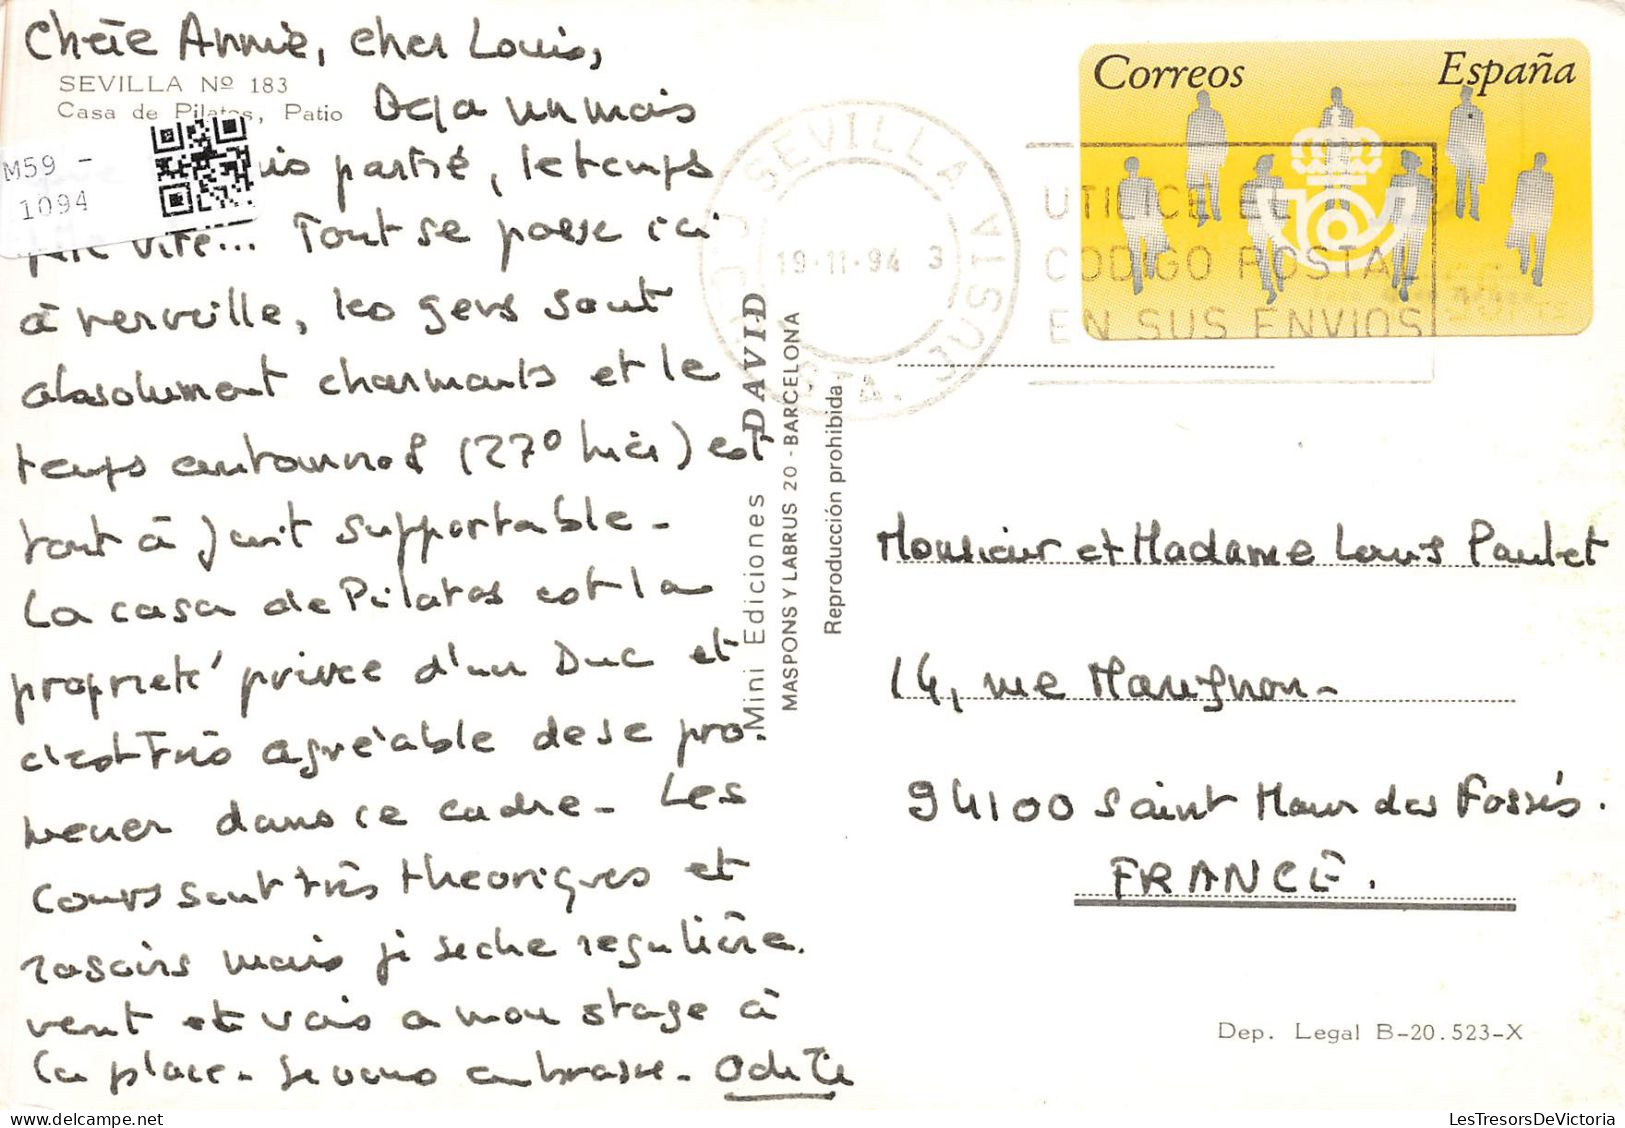 Chère Annie, cher Louis,
SEVILLA Nº 183
Casa de Pilatos, Patio
Deja un mois
M59 -
1094
partie, le temps
vite... Tout se passe ici
à merveille, les gens sont
absolument charmants et le
temps automnal (27° hier) est
tout à fait supportable -
La casa de Pilatos est la
propriété privée d'un Duc et
c'est très agréable de se pro-
mener dans ce cadre - Les
cours sont très théoriques et
rasoirs mais j'y sèche régulière
ment et vais a mon stage à
la place - Je vous embrasse - Odette
Mini Ediciones DAVID
MASPONS Y LABRUS 20 - BARCELONA
Reproducción prohibida
Correos
España
SEVILLA
19-11-94 3
JUSTA
STA.
UTILICE EL
CODIGO POSTAL
EN SUS ENVIOS
Monsieur et Madame Louis Paulet
14, rue Marignon -
94100 Saint Maur des Fossés.
FRANCE.
Dep. Legal B-20.523-X
LesTresorsDeVictoria